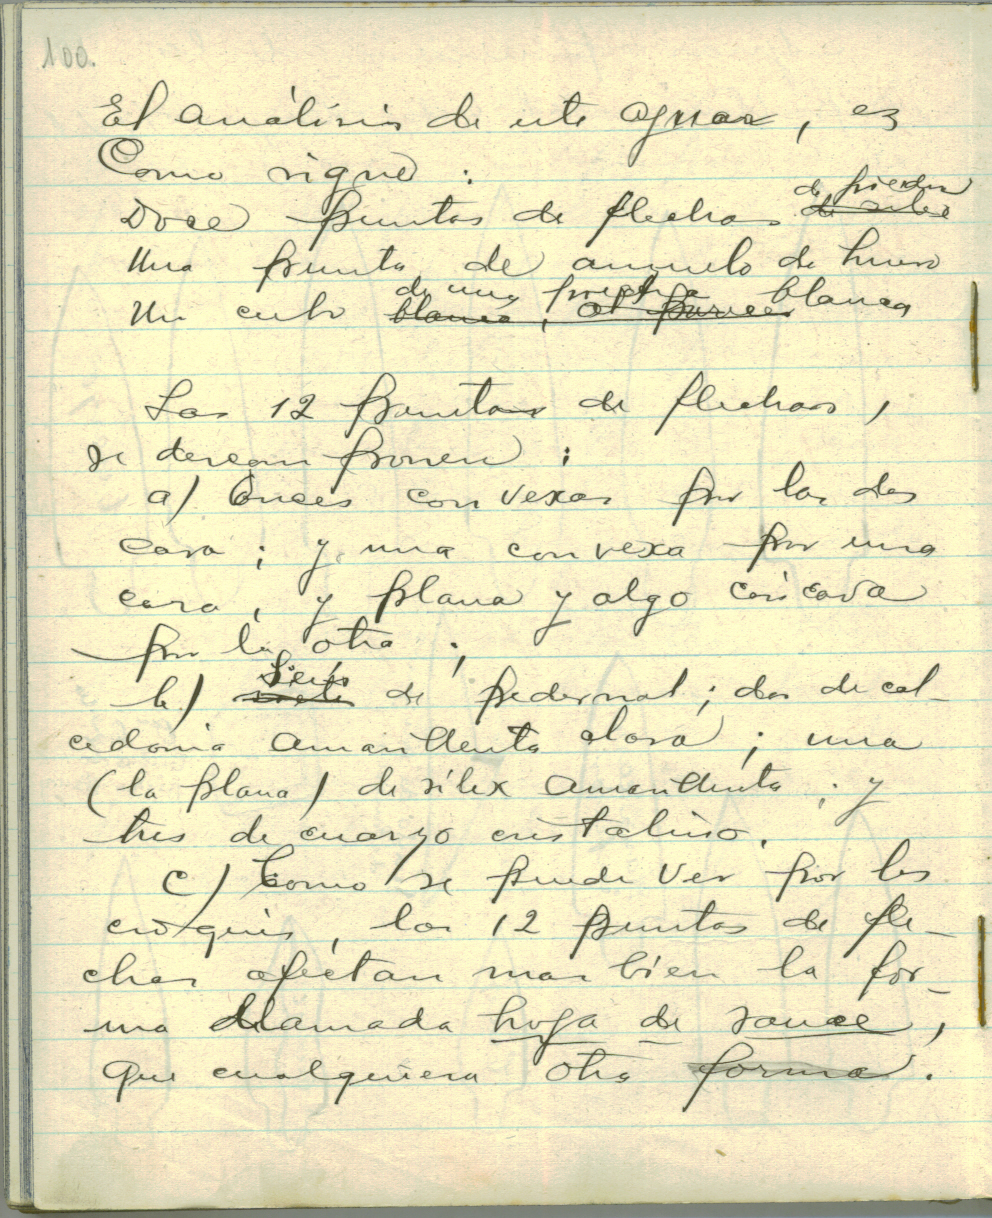 100.
El análisis de este ajuar, es
Como sigue :
de piedra
Doce puntas de flechas ~~de silex~~
Una punta de anzuelo de hueso
de una piedra blanca
Un cubo ~~blanco, al parecer~~
Las 12 puntas de flechas,
se descomponen :
a) Onces convexas por las dos
cara ; y una convexa por una
cara, y plana y algo cóncava
por la otra ;
Seis
b) ~~siete~~ de pedernal ; dos de cal-
cedonia amarillenta clara ; una
(la plana) de sílex amarillenta ; y
tres de cuarzo cristalino.
c) Como se puede ver por los
croquis, las 12 puntas de fle-
chas afectan mas bien la for-
ma llamada hoja de sauce,
que cualquiera otra ~~forma~~.